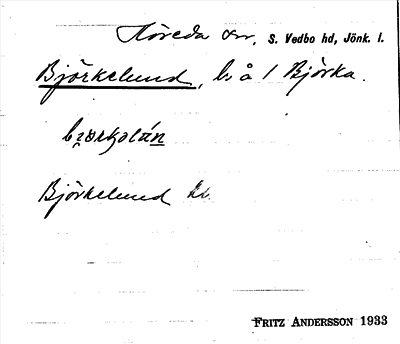 Höreda sn, S. Vedbo hd, Jönk. l.
Björkelund, b. å 1 Björka.
Björkelund
FRITZ ANDERSSON 1933